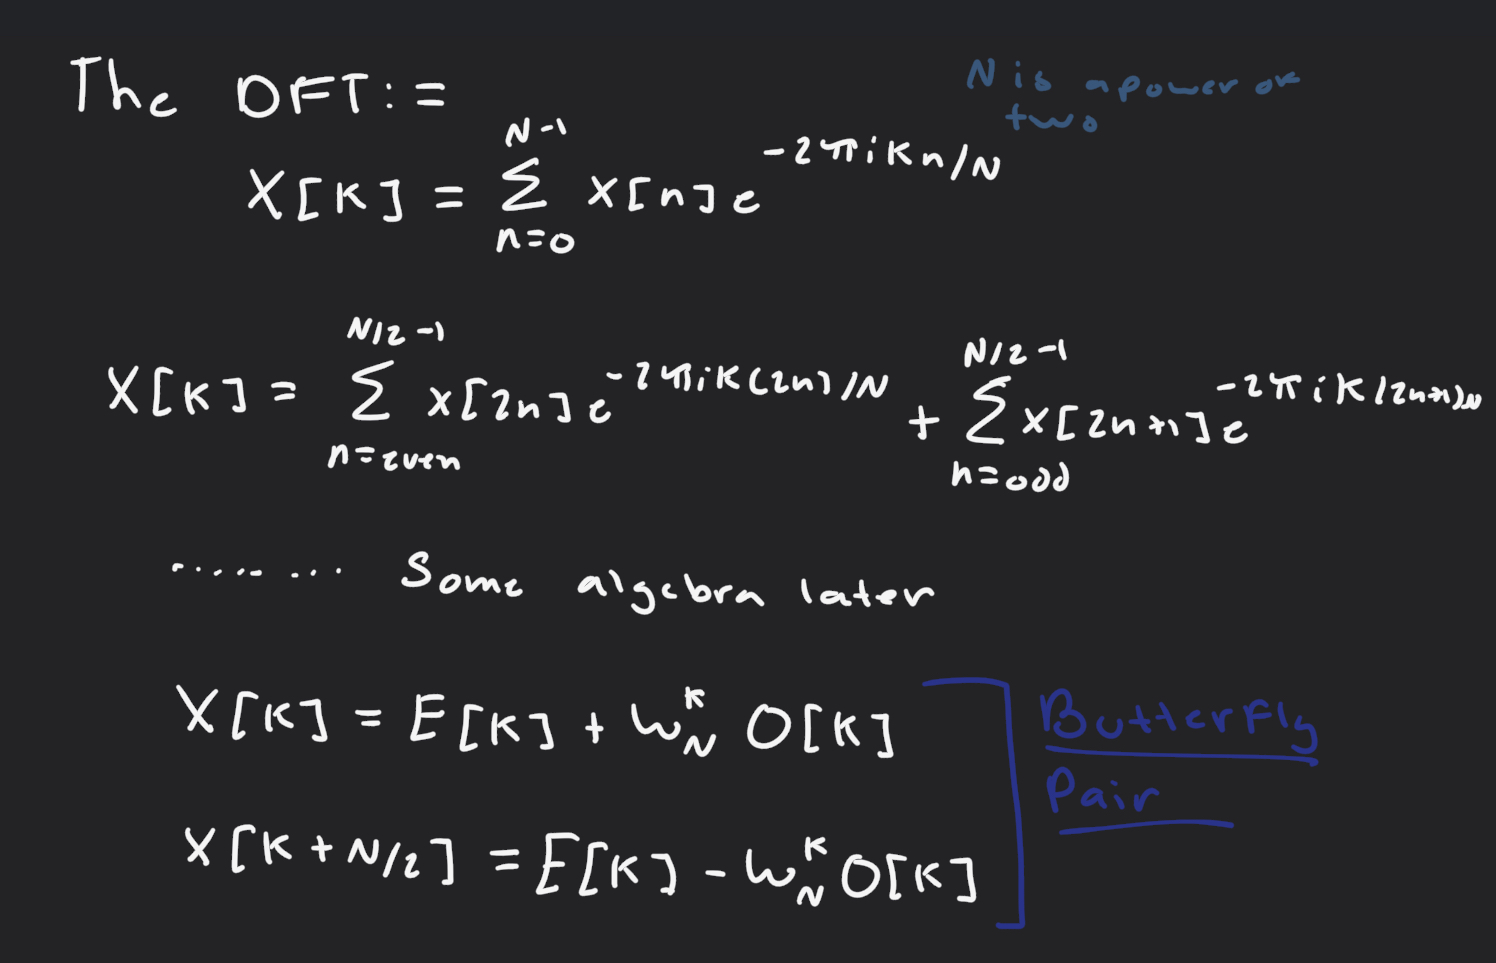 The DFT:=
N is a power of two
X[K] = \sum_{n=0}^{N-1} x[n] e^{-2πiKn/N}
X[K] = \sum_{n=even}^{N/2-1} x[2n] e^{-2πiK(2n)/N} + \sum_{n=odd}^{N/2-1} x[2n+1] e^{-2πiK(2n+1)/N}
......... Some algebra later
X[K] = E[K] + W_N^K O[K]
X[K+N/2] = E[K] - W_N^K O[K]
Butterfly
Pair